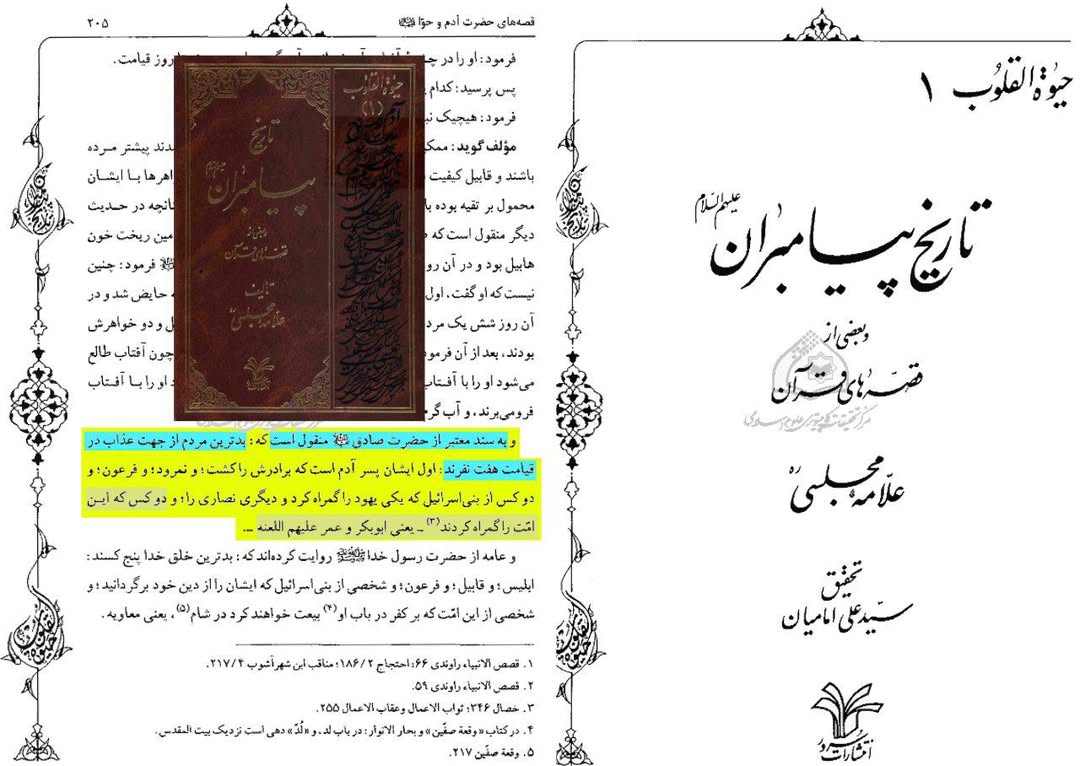 قصه‌های حضرت آدم و حوّا
۲۰۵
فرمود: او را در
روز قیامت.
پس پرسید: کدام
فرمود: هیچیک
مؤلف گوید:
دند پیشتر مرده
باشند و قابیل کیفیت
اهرها با ایشان
محمول بر تقیه بوده
انچه در حدیث
دیگر منقول است که
مین ریخت خون
هابیل بود و در آن
فرمود: چنین
نیست که او گفت، اول
حایض شد و در
آن روز شش یک مرد
ل و دو خواهرش
بودند، بعد از آن فرمود
چون آفتاب طالع
می‌شود او را با آفتاب
د او را با آفتاب
فرو می‌برند، و آب
و به سند معتبر از حضرت صادق علیه السلام منقول است که: بدترین مردم از جهت عذاب در
قیامت هفت نفرند: اول ایشان پسر آدم است که برادرش را کشت؛ و نمرود؛ و فرعون؛ و
دو کس از بنی‌اسرائیل که یکی یهود را گمراه کرد و دیگری نصاری را؛ و دو کس که این
امّت را گمراه کردند (۳) ــ یعنی ابوبکر و عمر علیهم اللعنه ــ.
و عامه از حضرت رسول خدا ﷺ روایت کرده‌اند که: بدترین خلق خدا پنج کسند:
ابلیس؛ و قابیل؛ و فرعون؛ و شخصی از بنی‌اسرائیل که ایشان را از دین خود برگردانید؛ و
شخصی از این امّت که بر کفر در باب او (۴) بیعت خواهند کرد در شام (۵)، یعنی معاویه.
۱. قصص الانبیاء راوندی ۶۶؛ احتجاج ۱۸۶/۲؛ مناقب ابن شهرآشوب ۲۱۷/۴.
۲. قصص الانبیاء راوندی ۵۹.
۳. خصال ۳۴۶؛ ثواب الاعمال وعقاب الاعمال ۲۵۵.
۴. در کتاب «وقعة صفّین» و بحار الانوار: در باب لد، و «لُدّ» دهی است نزدیک بیت المقدس.
۵. وقعة صفّین ۲۱۷.
حیوة القلوب
(۱)
تاریخ
پیامبران
علیهم السلام
و بعضی از
قصه‌های قرآن
تألیف
علامه مجلسی
حیوة القلوب ۱
تاریخ پیامبران علیهم السّلام
و بعضی از
قصّه‌های قرآن
علّامه مجلسی ره
تحقیق
سیّد علی امامیان
انتشارات سرور